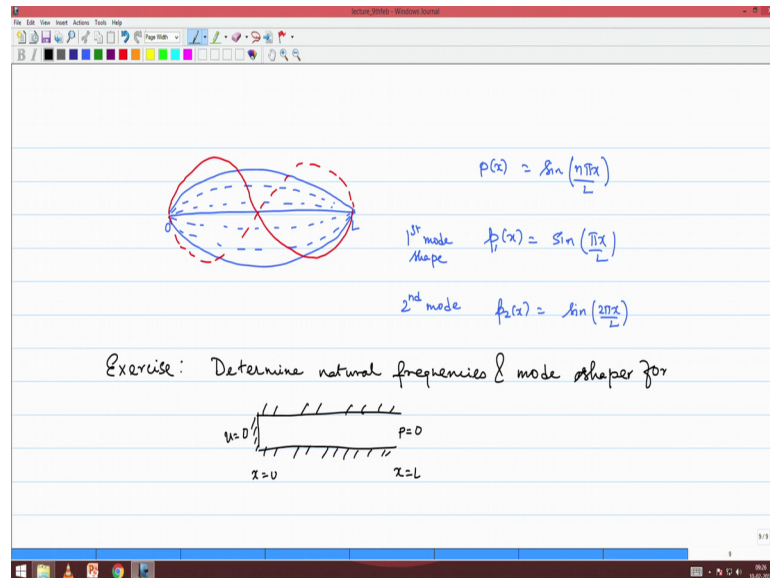 lecture_9thfeb - Windows Journal
File Edit View Insert Actions Tools Help
Page Width
B I
p(x) = sin (nπx/L)
0 L
1st mode shape p₁(x) = sin (πx/L)
2nd mode p₂(x) = sin (2πx/L)
Exercise: Determine natural frequencies & mode shapes for
u=0 p=0
x=0 x=L
9/9
9
09:26